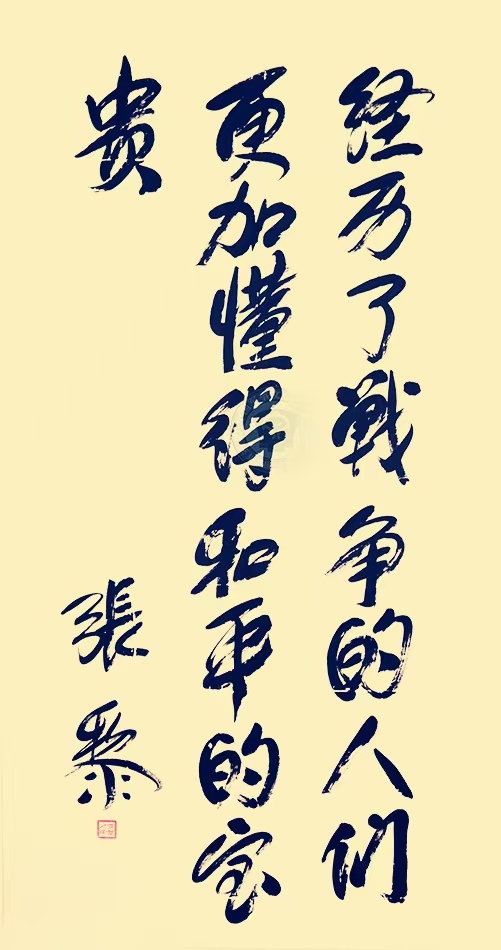 经历了战争的人们
更加懂得和平的宝
贵
張黎